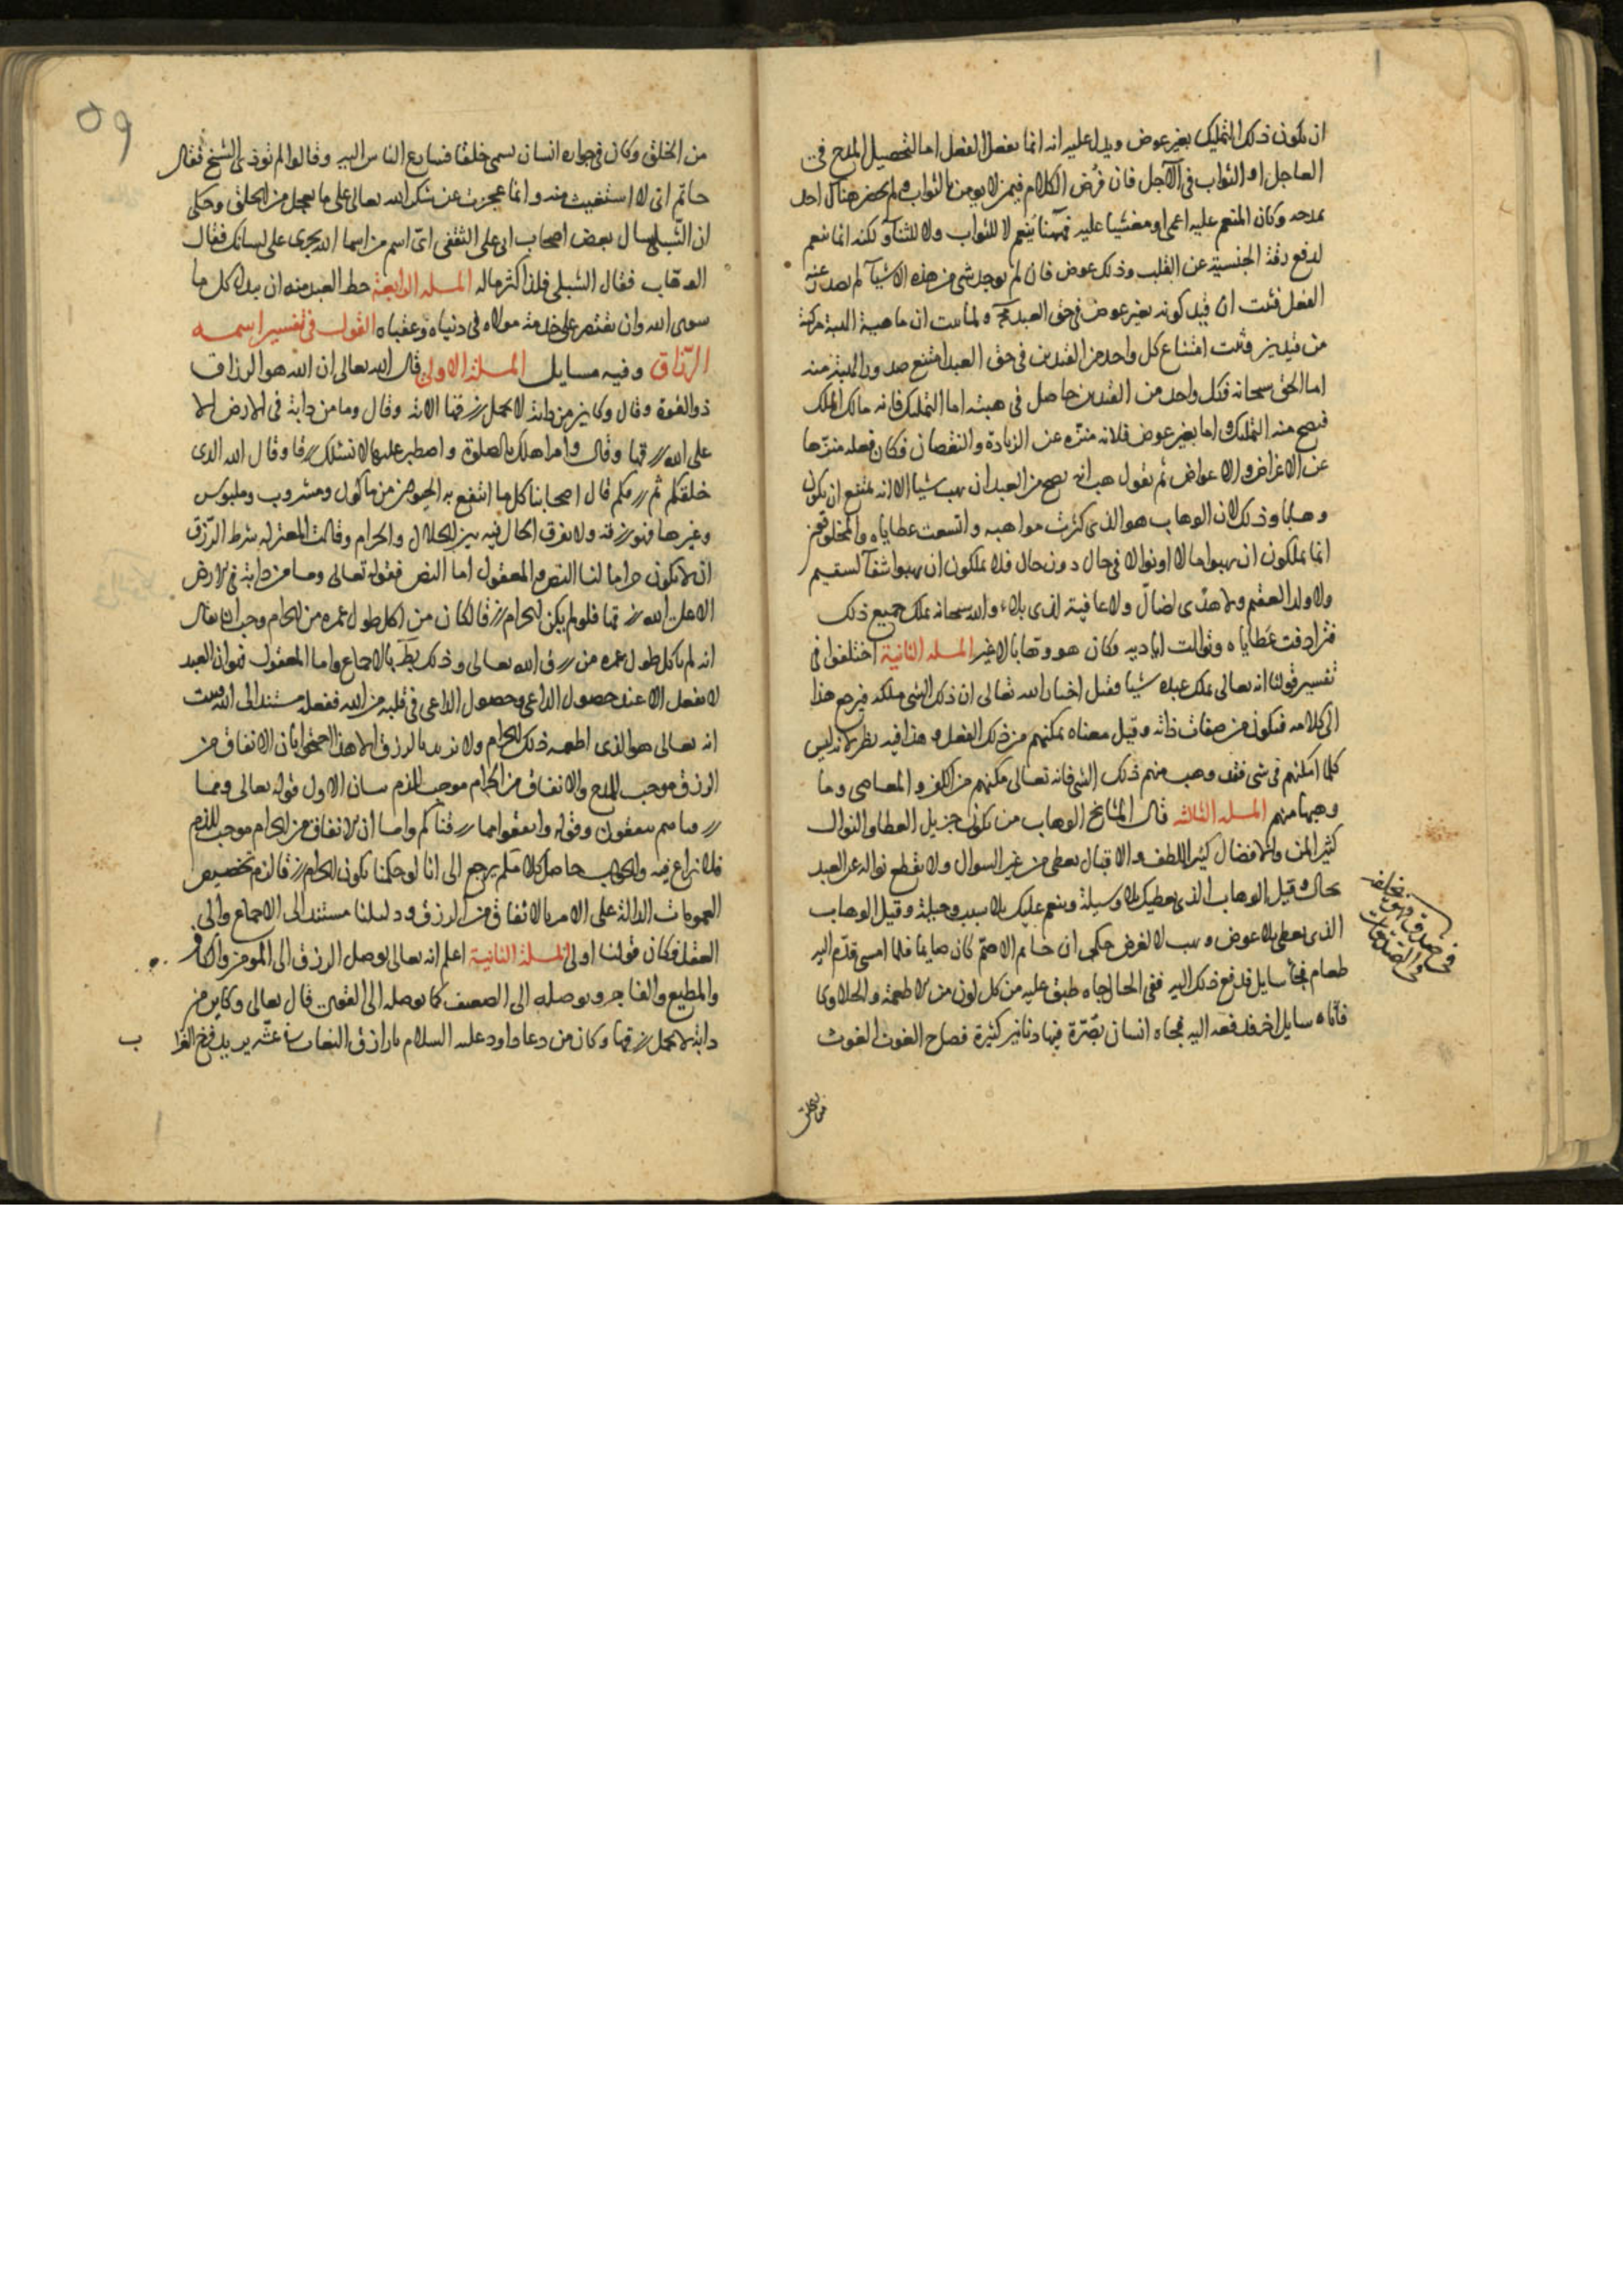 ان يكون ذلك التمليك بغير عوض ويدل عليه انه انما يفعل الفعل اما لتحصيل المدح في
العاجل او الثواب في الآجل فان فرض الكلام فيمن لا يومن بالثواب ولم يحضر هناك احد
يمدحه وكان المنعم عليه اعمى او مغشيا عليه فههنا ينعم لا للثواب ولا للثنآ ولكنه انما ينعم
لدفع رقة الجنسية عن القلب وذلك عوض فان لم يوجد شى من هذه الاشيآ لم يصدر عنه
الفعل فثبت ان قيد كونه بغير عوض في حق العبد مح ولما ثبت ان ماهية الهبة مركبة
من قيدين وثبت امتناع كل واحد من القيدين في حق العبد امتنع صدور الهبة منه
اما الحق سبحانه فكل واحد من القيدين حاصل في هبته اما التمليك فانه مالك الملك
فيصح منه التمليك واما بغير عوض فلانه منزه عن الزيادة والنقصان فكان فعله منزها
عن الاغراض والاعواض ثم نقول هب انه يصح من العبد ان يهب شيا الا انه يمتنع ان يكون
وهابا وذلك لان الوهاب هو الذى كثرت مواهبه واتسعت عطاياه والمخلوقون
انما يملكون ان يهبوا مالا او نوالا في حال دون حال فلا يملكون ان يهبوا شفآ لسقيم
ولا ولدا لعقيم ولا هدى لضال ولا عافية لذى بلاء والله سبحانه يملك جميع ذلك
فترادفت عطاياه وتوالت اياديه فكان هو وهابا لا غير المسله الثانية اختلفوا في
تفسير قولنا انه تعالى يملك عبده شيا فقيل اخبار الله تعالى ان ذلك الشى ملكه فيرجع هذا
الى كلامه فيكون من صفات ذاته وقيل معناه تمكينهم من ذلك الفعل وهذا فيه نظر لانه ليس
كلما امكنهم في شى فقد وهب منهم ذلك الشى فانه تعالى مكنهم من الكفر والمعاصى وما
وهبها منهم المسله الثالثه قال المشايخ الوهاب من يكون جزيل العطا والنوال
كثير المن والافضال كثير اللطف والاقبال يعطى من غير السوال ولا يقطع نواله عن العبد
بحال وقيل الوهاب الذى يعطيك بلا وسيلة وينعم عليك بلا سبب وحيلة وقيل الوهاب
الذى يعطى بلا عوض ويهب لا لغرض حكى ان حاتم الاصم كان صايما فلما امسى قدم اليه
طعام فجآ سايل فدفع ذلك اليه ففى الحال جاه طبق عليه من كل لون من الاطعمة والحلاوى
فاتاه سايل اخر فدفعه اليه فجاه انسان بصرة فيها دنانير كثيرة فصاح الغوث الغوث
من الخلق
من الخلق وكان في جواره انسان يسمى خلقا فسارع الناس اليه وقالوا لم توذى الشيخ فقال
حاتم انى لا استغيث منه وانما عجزت عن شكر الله تعالى على ما يعجل من الخلق وحكى
ان الشبلى سال بعض اصحاب ابى على الثقفى اى اسم من اسما الله يجرى على لسانك فقال
الوهاب فقال الشبلى فلذا كثر ماله المسله الرابعة حظ العبد منه ان يبذل كل ما
سوى الله وان يقتصر على خدمة مولاه في دنياه وعقباه القول في تفسير اسمه
الرزاق وفيه مسايل المسلة الاولى قال الله تعالى ان الله هو الرزاق
ذو القوة وقال وكاين من دابة لا تحمل رزقها الاية وقال وما من دابة في الارض الا
على الله رزقها وقال وامر اهلك بالصلوة واصطبر عليها لا نسئلك رزقا وقال الله الذى
خلقكم ثم رزقكم قال اصحابنا كل ما انتفع به الحيوان من ماكول ومشروب وملبوس
وغيرها فهو رزقه ولا يفرق الحال فيه بين الحلال والحرام وقالت المعتزله شرط الرزق
ان لا يكون حراما لنا النص والمعقول اما النص فقوله تعالى وما من دابة في الارض
الا على الله رزقها فلو لم يكن الحرام رزقا لكان من اكل طول عمره من الحرام وجب ان يقال
انه لم ياكل طول عمره من رزق الله تعالى وذلك بط بالاجماع واما المعقول فهو ان العبد
لا يفعل الا عند حصول الداعى وحصول الداعى في قلبه من الله ففعله مستند الى الله فثبت
انه تعالى هو الذى اطعمه ذلك الحرام ولا نريد بالرزق الا هذا احتجوا بان الانفاق من
الرزق موجب للمدح والانفاق من الحرام موجب للذم بيان الاول قوله تعالى ومما
رزقناهم ينفقون وقوله وانفقوا مما رزقناكم واما ان الانفاق من الحرام موجب للذم
فلا نزاع فيه والجواب حاصل كلامكم يرجع الى انا لو حكمنا بكون الحرام رزقا لزم تخصيص
العمومات الدالة على الامر بالانفاق من الرزق ودليلنا مستند الى الاجماع والى
العقل فكان قولنا اولى المسلة الثانية اعلم انه تعالى يوصل الرزق الى المومن والكافر
والمطيع والفاجر ويوصله الى الضعيف كما يوصله الى القوى قال تعالى وكاين من
دابة لا تحمل رزقها وكان من دعا داود عليه السلام يا رازق النعاب في عشه يريد فرخ الغرا
ب